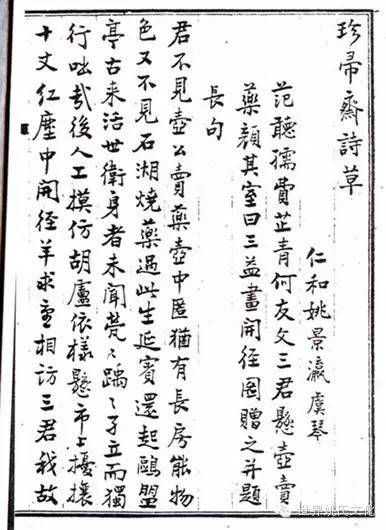 珍帚齋詩草
仁和姚景瀛虞琴
范聽孺費芷青何友文三君懸壺賣
藥顏其室曰三益畫開徑圖贈之并題
長句
君不見壺公賣藥壺中匿猶有長房能物
色又不見石湖燒藥過此生延賓還起鷗盟
亭古來活世衛身者未聞煢〻踽〻孑立而獨
行咄哉後人工摸仿胡盧依樣懸市上擾攘
十丈紅塵中開徑羊求重相訪三君我故
世界姚氏文化